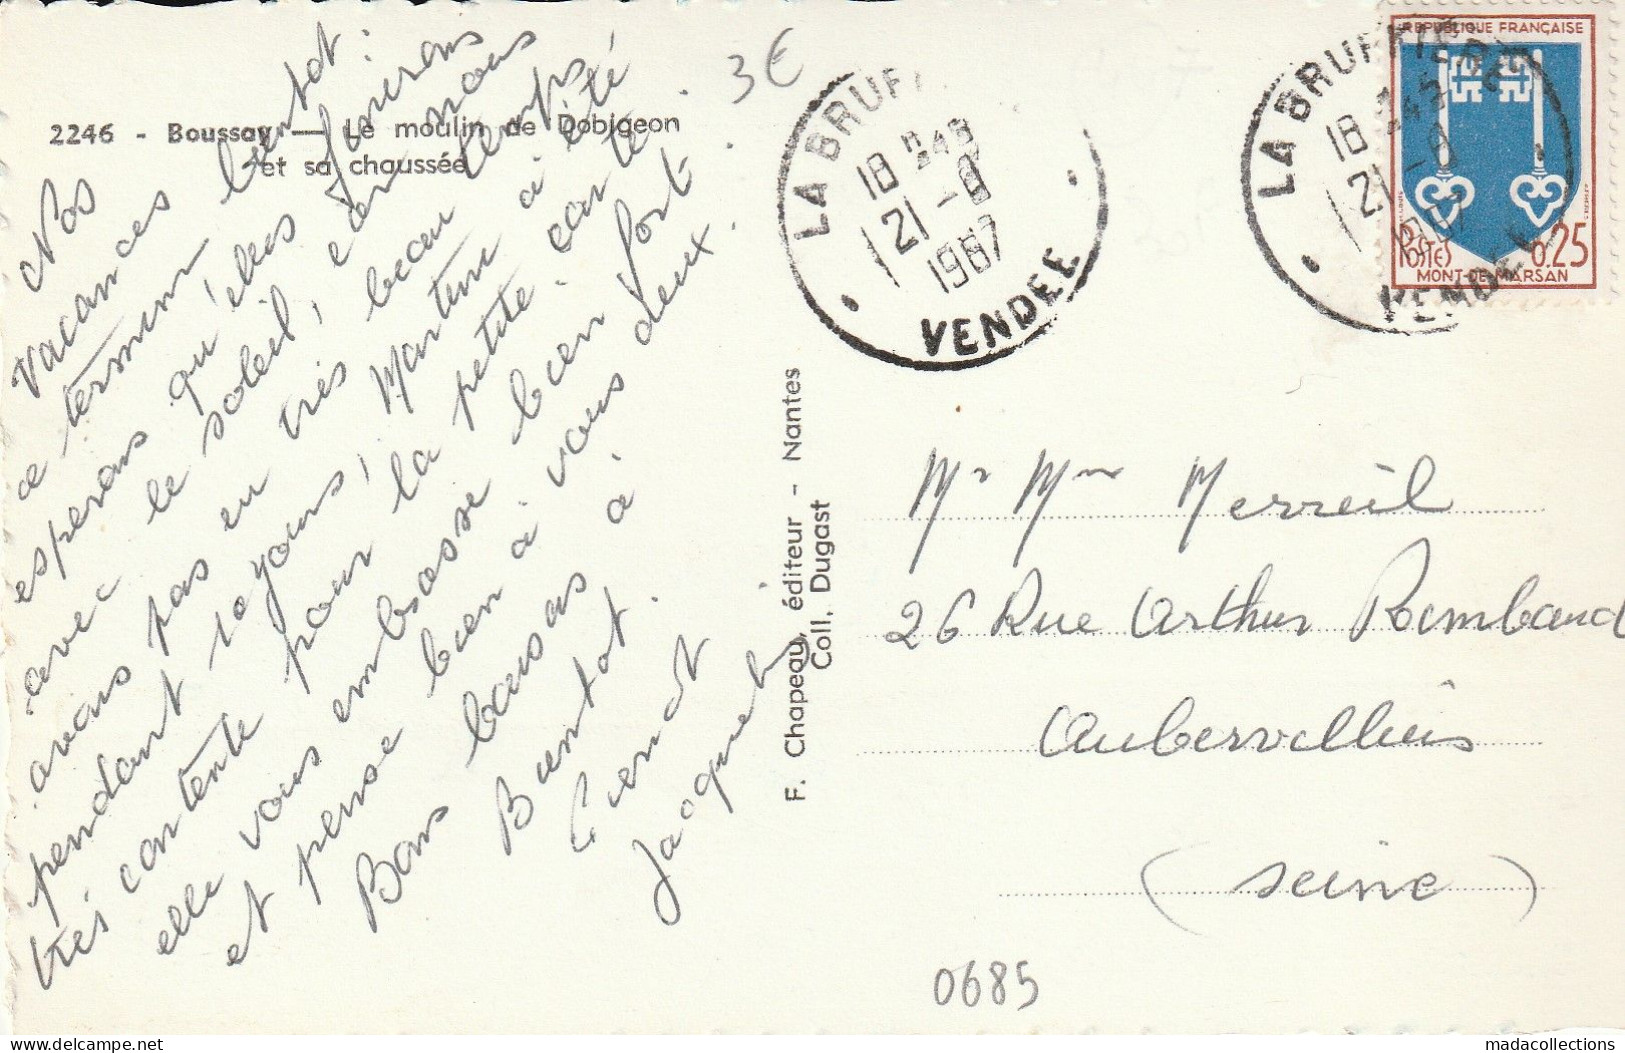 2246 - Boussay — Le moulin de Dobigeon
et sa chaussée
3€
Nos
vacances bientot :
ce terminer
esperons qu'elles finirons
avec le soleil, car nous
avons pas eu très beau temps
pendant 10 jours, Martine à été
très contente pour la petite carte.
elle vous embrasse bien fort.
et pense bien à vous deux.
Bons baisers à
Bientot.
Jacqueline
F. Chapeau, éditeur - Nantes
Coll. Dugast
LA BRUFF
18 H 45
21 - 8
1967
VENDEE
LA BRUFFIERE
18 H 45
21 - 8
VENDEE
REPUBLIQUE FRANÇAISE
POSTES
0,25
MONT-DE-MARSAN
Mr Mme Merreil
26 Rue Arthur Rimbaud
Aubervilliers
(Seine)
0685
delcampe.net
madacollections